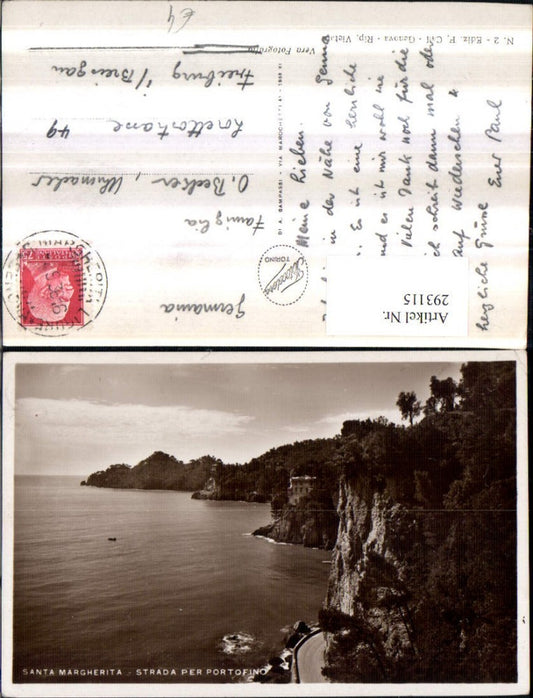 €4
N. 2 - Ediz. P. C.
Genova - Rip. Vietata
Vera Fotografia
Meine Lieben.
in der Nähe von Genua
Es ist eine herrliche
und es ist mir wohl wie
Vielen Dank noch für die
ich schreib dann mal oder
auf Wiedersehen &
herzliche Grüsse Euer Paul
VIA MAROCHETTI
TORINO
Germania
Famiglia
O. Becker, Uhrmacher
Lorettostrasse 49
Freiburg i/Breisgau
Artikel Nr.
293115
SANTA MARGHERITA - STRADA PER PORTOFINO